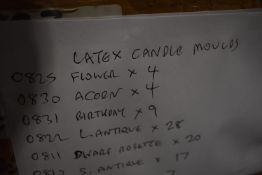 LATEX CANDLE MOULDS
0825 FLOWER x 4
0830 ACORN x 4
0831 BIRTHDAY x 9
0822 L. ANTIQUE x 28
0811 DWARF ROSETTE x 20
S. ANTIQUE x 17